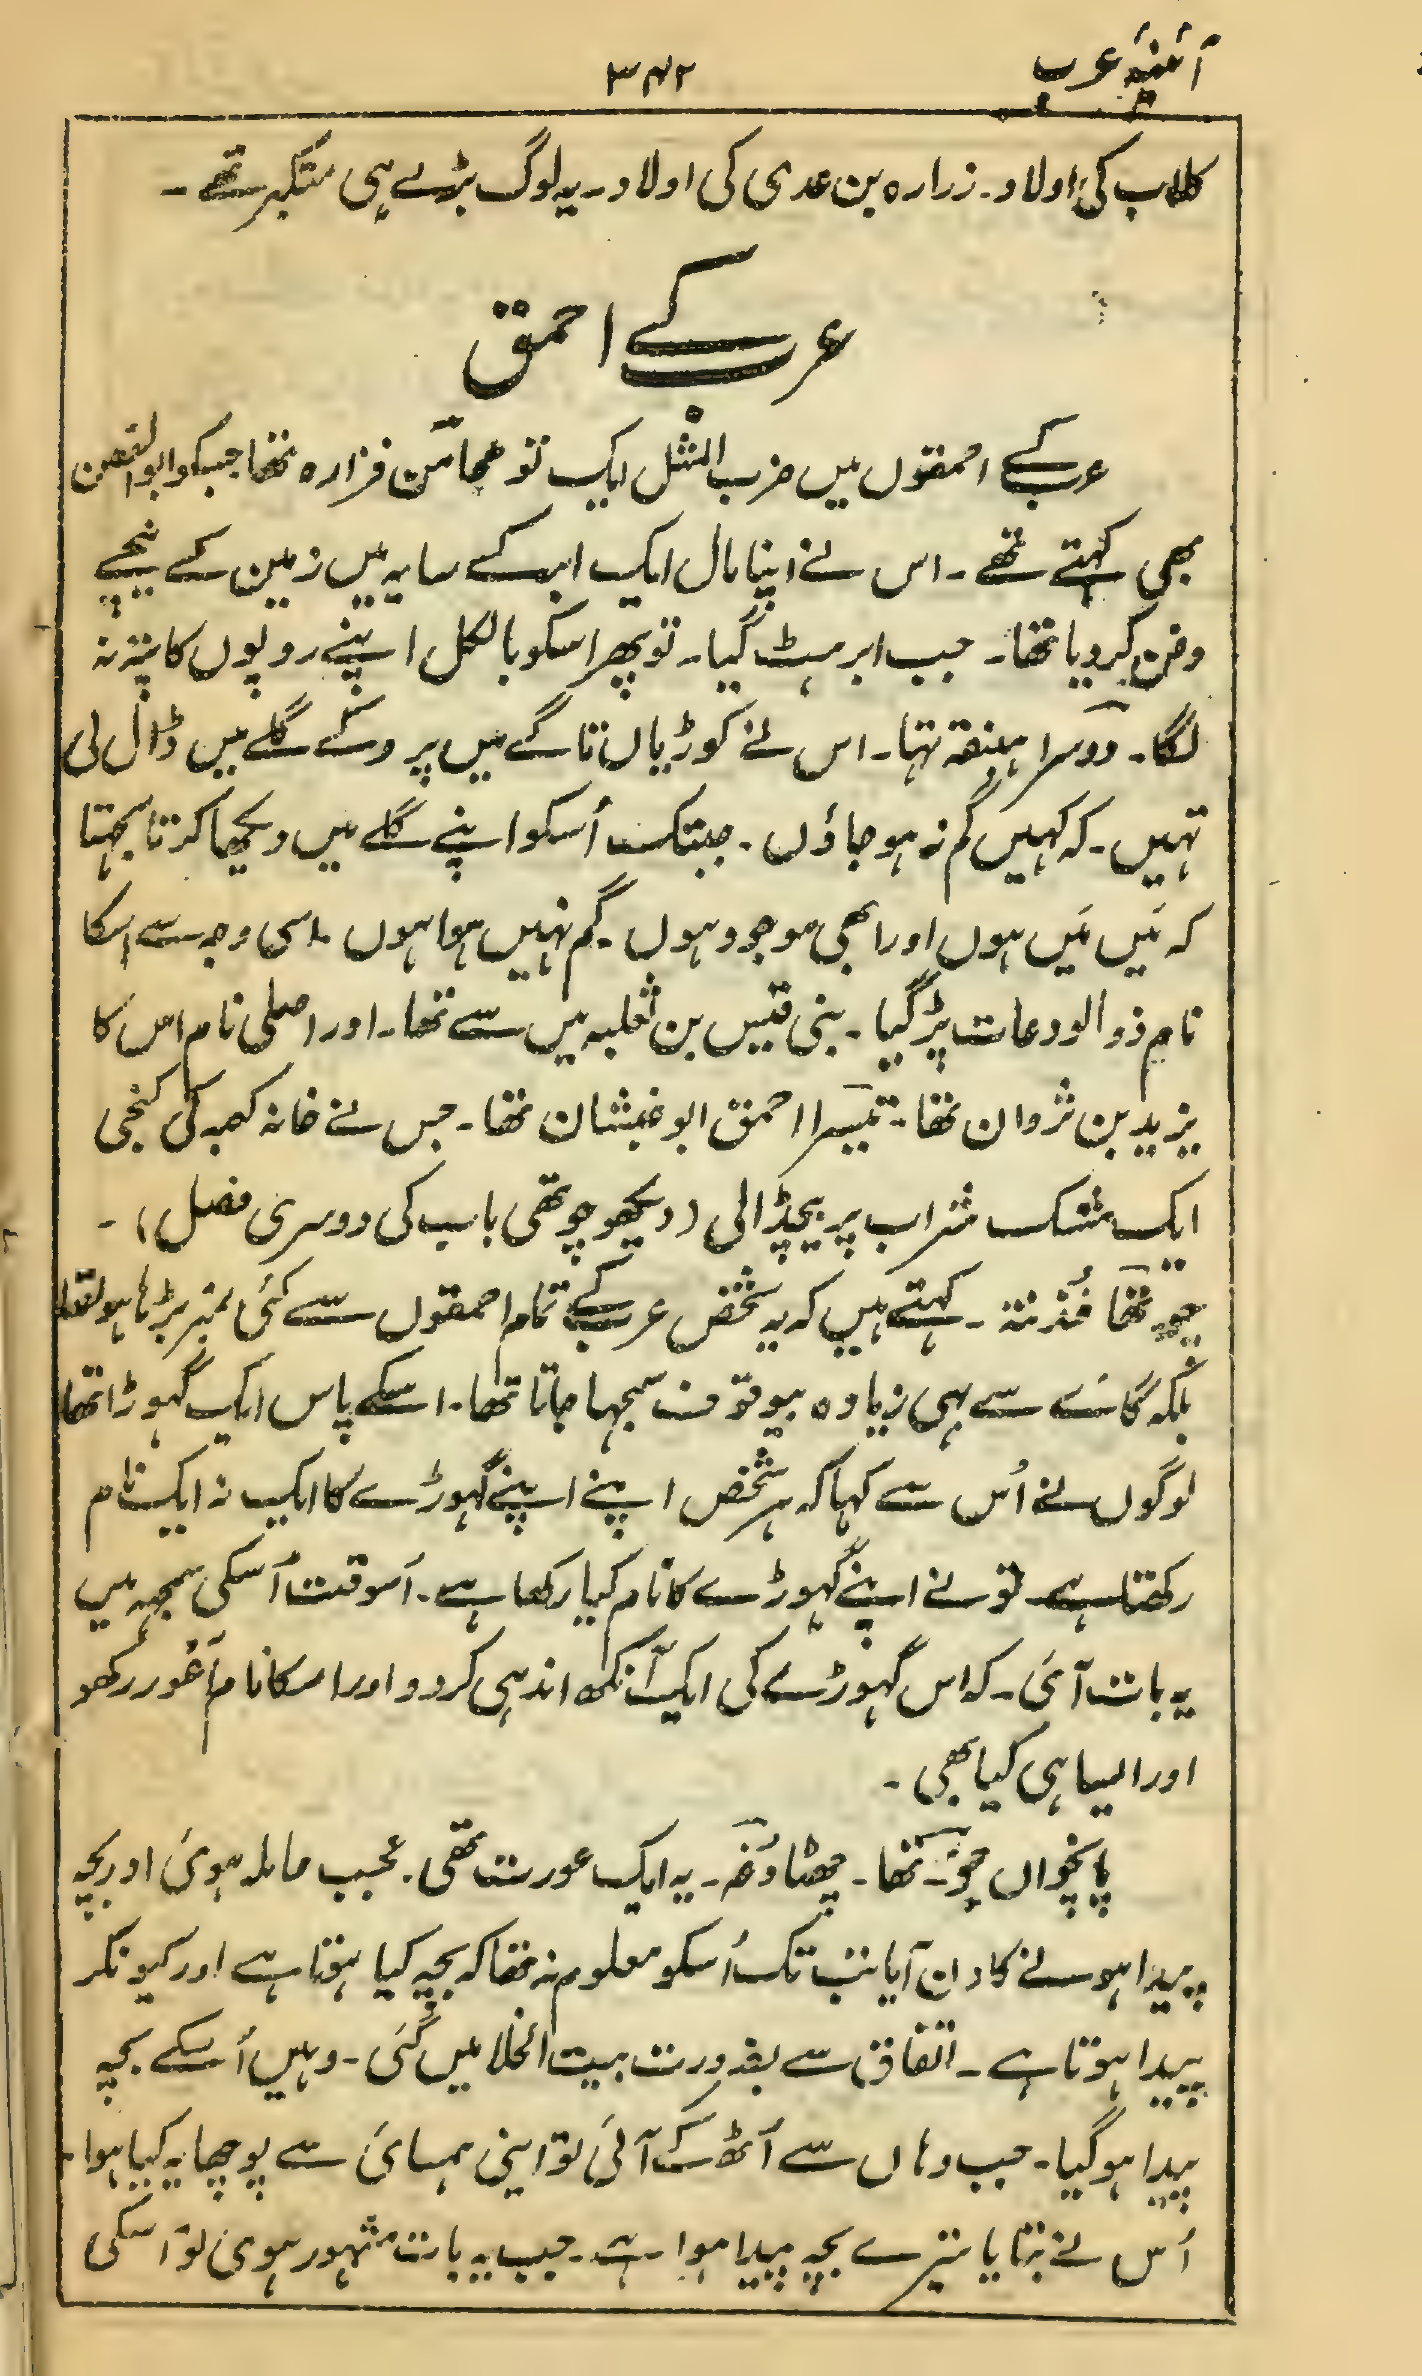 آئینۂ عرب
۳۴۲
کلاب کی اولاد۔ زرارہ بن عدی کی اولاد۔ یہ لوگ بڑے ہی متکبر تھے۔
عرب کے احمق
عرب کے احمقوں میں ضرب المثل ایک تو فزارہ تھا جسکو ابو الغصن
بھی کہتے تھے۔ اس نے اپنا مال ایک ابر کے سایہ میں زمین کے نیچے
دفن کر دیا تھا۔ جب ابر ہٹ گیا۔ تو پھر اسکو بالکل اپنے روپوں کا پتہ نہ
لگا۔ دوسرا ہبنقہ تہا۔ اس نے کوڑیاں تاگے میں پروکے گلے میں ڈال لی
تہیں۔ کہ کہیں گم نہ ہو جاؤں۔ جبتک اُسکو اپنے گلے میں دیکھا کرتا سمجہتا
کہ مَیں مَیں ہوں اور ابھی موجود ہوں۔ گم نہیں ہوا ہوں۔ اسی وجہ سے اسکا
نام ذو الودعات پڑ گیا۔ بنی قیس بن ثعلبہ میں سے تھا۔ اور اصلی نام اس کا
یزید بن ثروان تھا۔ تیسرا احمق ابو غبشان تھا۔ جس نے خانہ کعبہ کی کنجی
ایک مشک شراب پر بیچڈالی (دیکھو چوتھی باب کی دوسری فصل)۔
چوتھا۔ کہتے ہیں کہ یہ شخص عرب کے تمام احمقوں سے کئی نمبر بڑہا ہوا تھا
بلکہ گائے سے بہی زیادہ بیوقوف سمجہا جاتا تھا۔ اسکے پاس ایک گہوڑا تھا
لوگوں نے اُس سے کہا کہ ہر شخص اپنے اپنے گہوڑے کا ایک نہ ایک نام
رکھتا ہے۔ تو نے اپنے گہوڑے کا نام کیا رکھا ہے۔ اُسوقت اُسکی سمجہہ میں
یہ بات آئی۔ کہ اس گہوڑے کی ایک آنکھ اندہی کر دو اور اسکا نام اَعْور رکھو
اور ایسا ہی کیا بھی۔
پانچواں تھا۔ چھٹا دُغہ۔ یہ ایک عورت تھی۔ جب حاملہ ہوئی اور بچہ
پیدا ہونے کا دن آیا تب تک اُسکو معلوم نہ تھا کہ بچہ کیا ہوتا ہے اور کیونکر
پیدا ہوتا ہے۔ اتفاق سے بضرورت بیت الخلا میں گئی۔ وہیں اُسکے بچہ
پیدا ہو گیا۔ جب وہاں سے اُٹھ کے آئی تو اپنی ہمسائی سے پوچھا یہ کیا ہوا۔
اُس نے بتایا تیرے بچہ پیدا ہوا ہے۔ جب یہ بات مشہور ہوئی تو اسکی